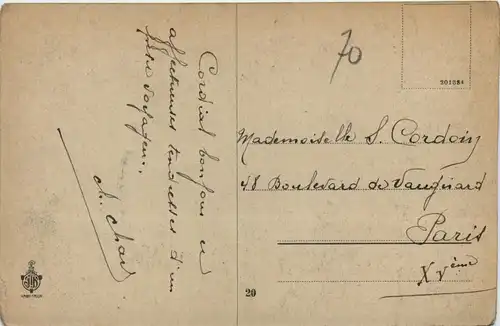 Cordial bonjour et
affectueuses tendresses d'un
frère voyageur.
Ch. Char
70
201084
Mademoiselle S. Cordoin
48 Boulevard de Vaugirard
Paris
XVème
20